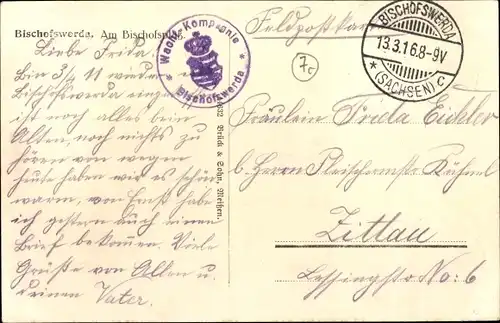 Bischofswerda. Am Bischofsplatz.
Feldpostkarte
Wach-Kompanie
* Bischofswerda *
BISCHOFSWERDA
13.3.16.8-9V
* (SACHSEN) c
7c
Liebe Frida!
Bin 3/4 11 wieder in
Bischofswerda
ist noch alles beim
Alten, noch nichts zu
hören von wegen
heute haben wir es schön
warm, von Ernst habe
ich gestern auch einen
Brief bekommen. Viele
Grüße von Allen u.
deinen Vater.
Brück & Sohn, Meißen.
Fräulein Frida
b. Herrn Fleischermstr. Kühnel
Zittau
Lessingstr No: 6